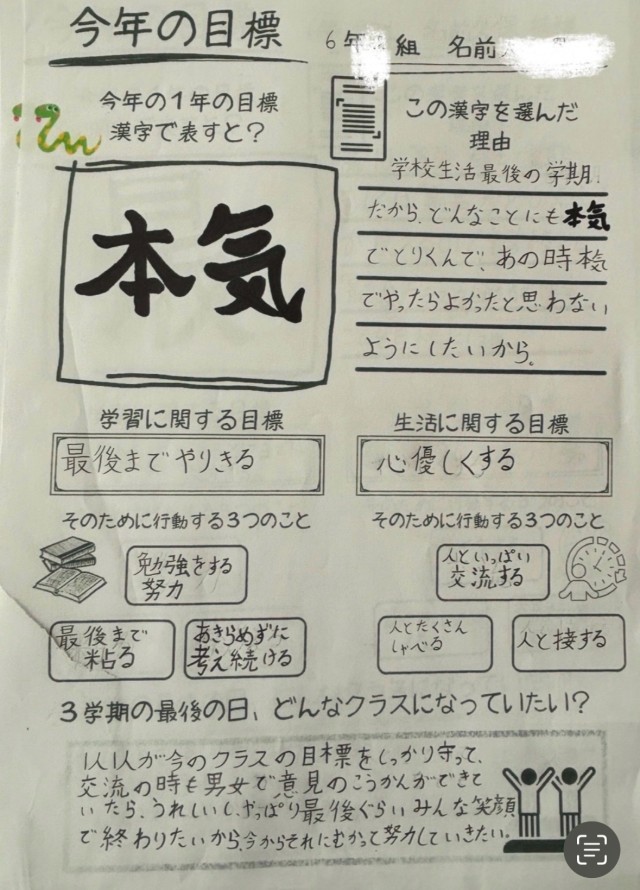 今年の目標
6年 組 名前
今年の1年の目標
漢字で表すと?
本気
この漢字を選んだ
理由
学校生活最後の学期
だから、どんなことにも本気
でとりくんで、あの時本気
でやったらよかったと思わない
ようにしたいから。
学習に関する目標
最後までやりきる
そのために行動する3つのこと
勉強をする
努力
最後まで
粘る
あきらめずに
考え続ける
生活に関する目標
心優しくする
そのために行動する3つのこと
人といっぱい
交流する
人とたくさん
しゃべる
人と接する
3学期の最後の日、どんなクラスになっていたい?
1人1人が今のクラスの目標をしっかり守って、
交流の時も男女で意見のこうかんができて
いたら、うれしいし、やっぱり最後ぐらいみんな笑顔
で終わりたいから、今からそれにむかって努力していきたい。